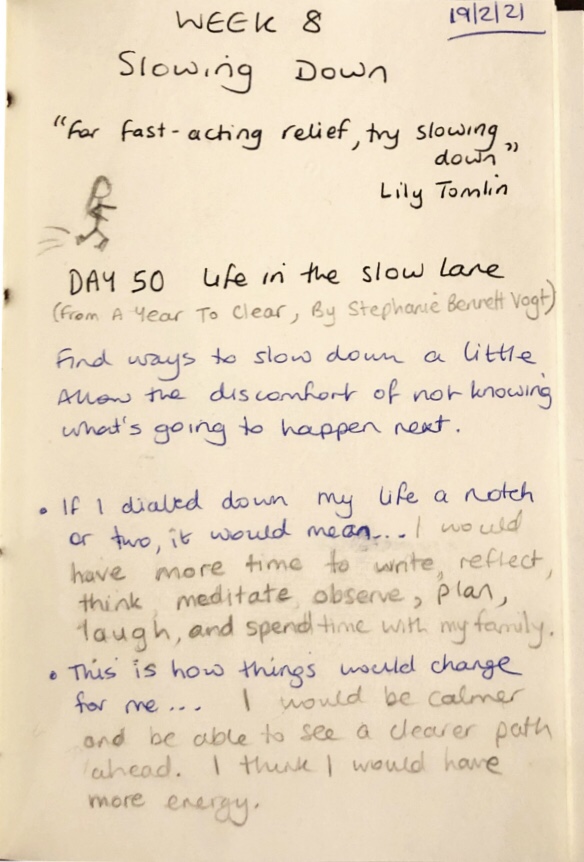 WEEK 8
19/2/21
Slowing Down
"For fast-acting relief, try slowing
down"
Lily Tomlin
DAY 50 Life in the slow lane
(From A Year To Clear, By Stephanie Bennett Vogt)
Find ways to slow down a little
Allow the discomfort of not knowing
what's going to happen next.
• If I dialed down my life a notch
or two, it would mean... I would
have more time to write, reflect,
think, meditate, observe, plan,
laugh, and spend time with my family.
• This is how things would change
for me... I would be calmer
and be able to see a clearer path
ahead. I think I would have
more energy.